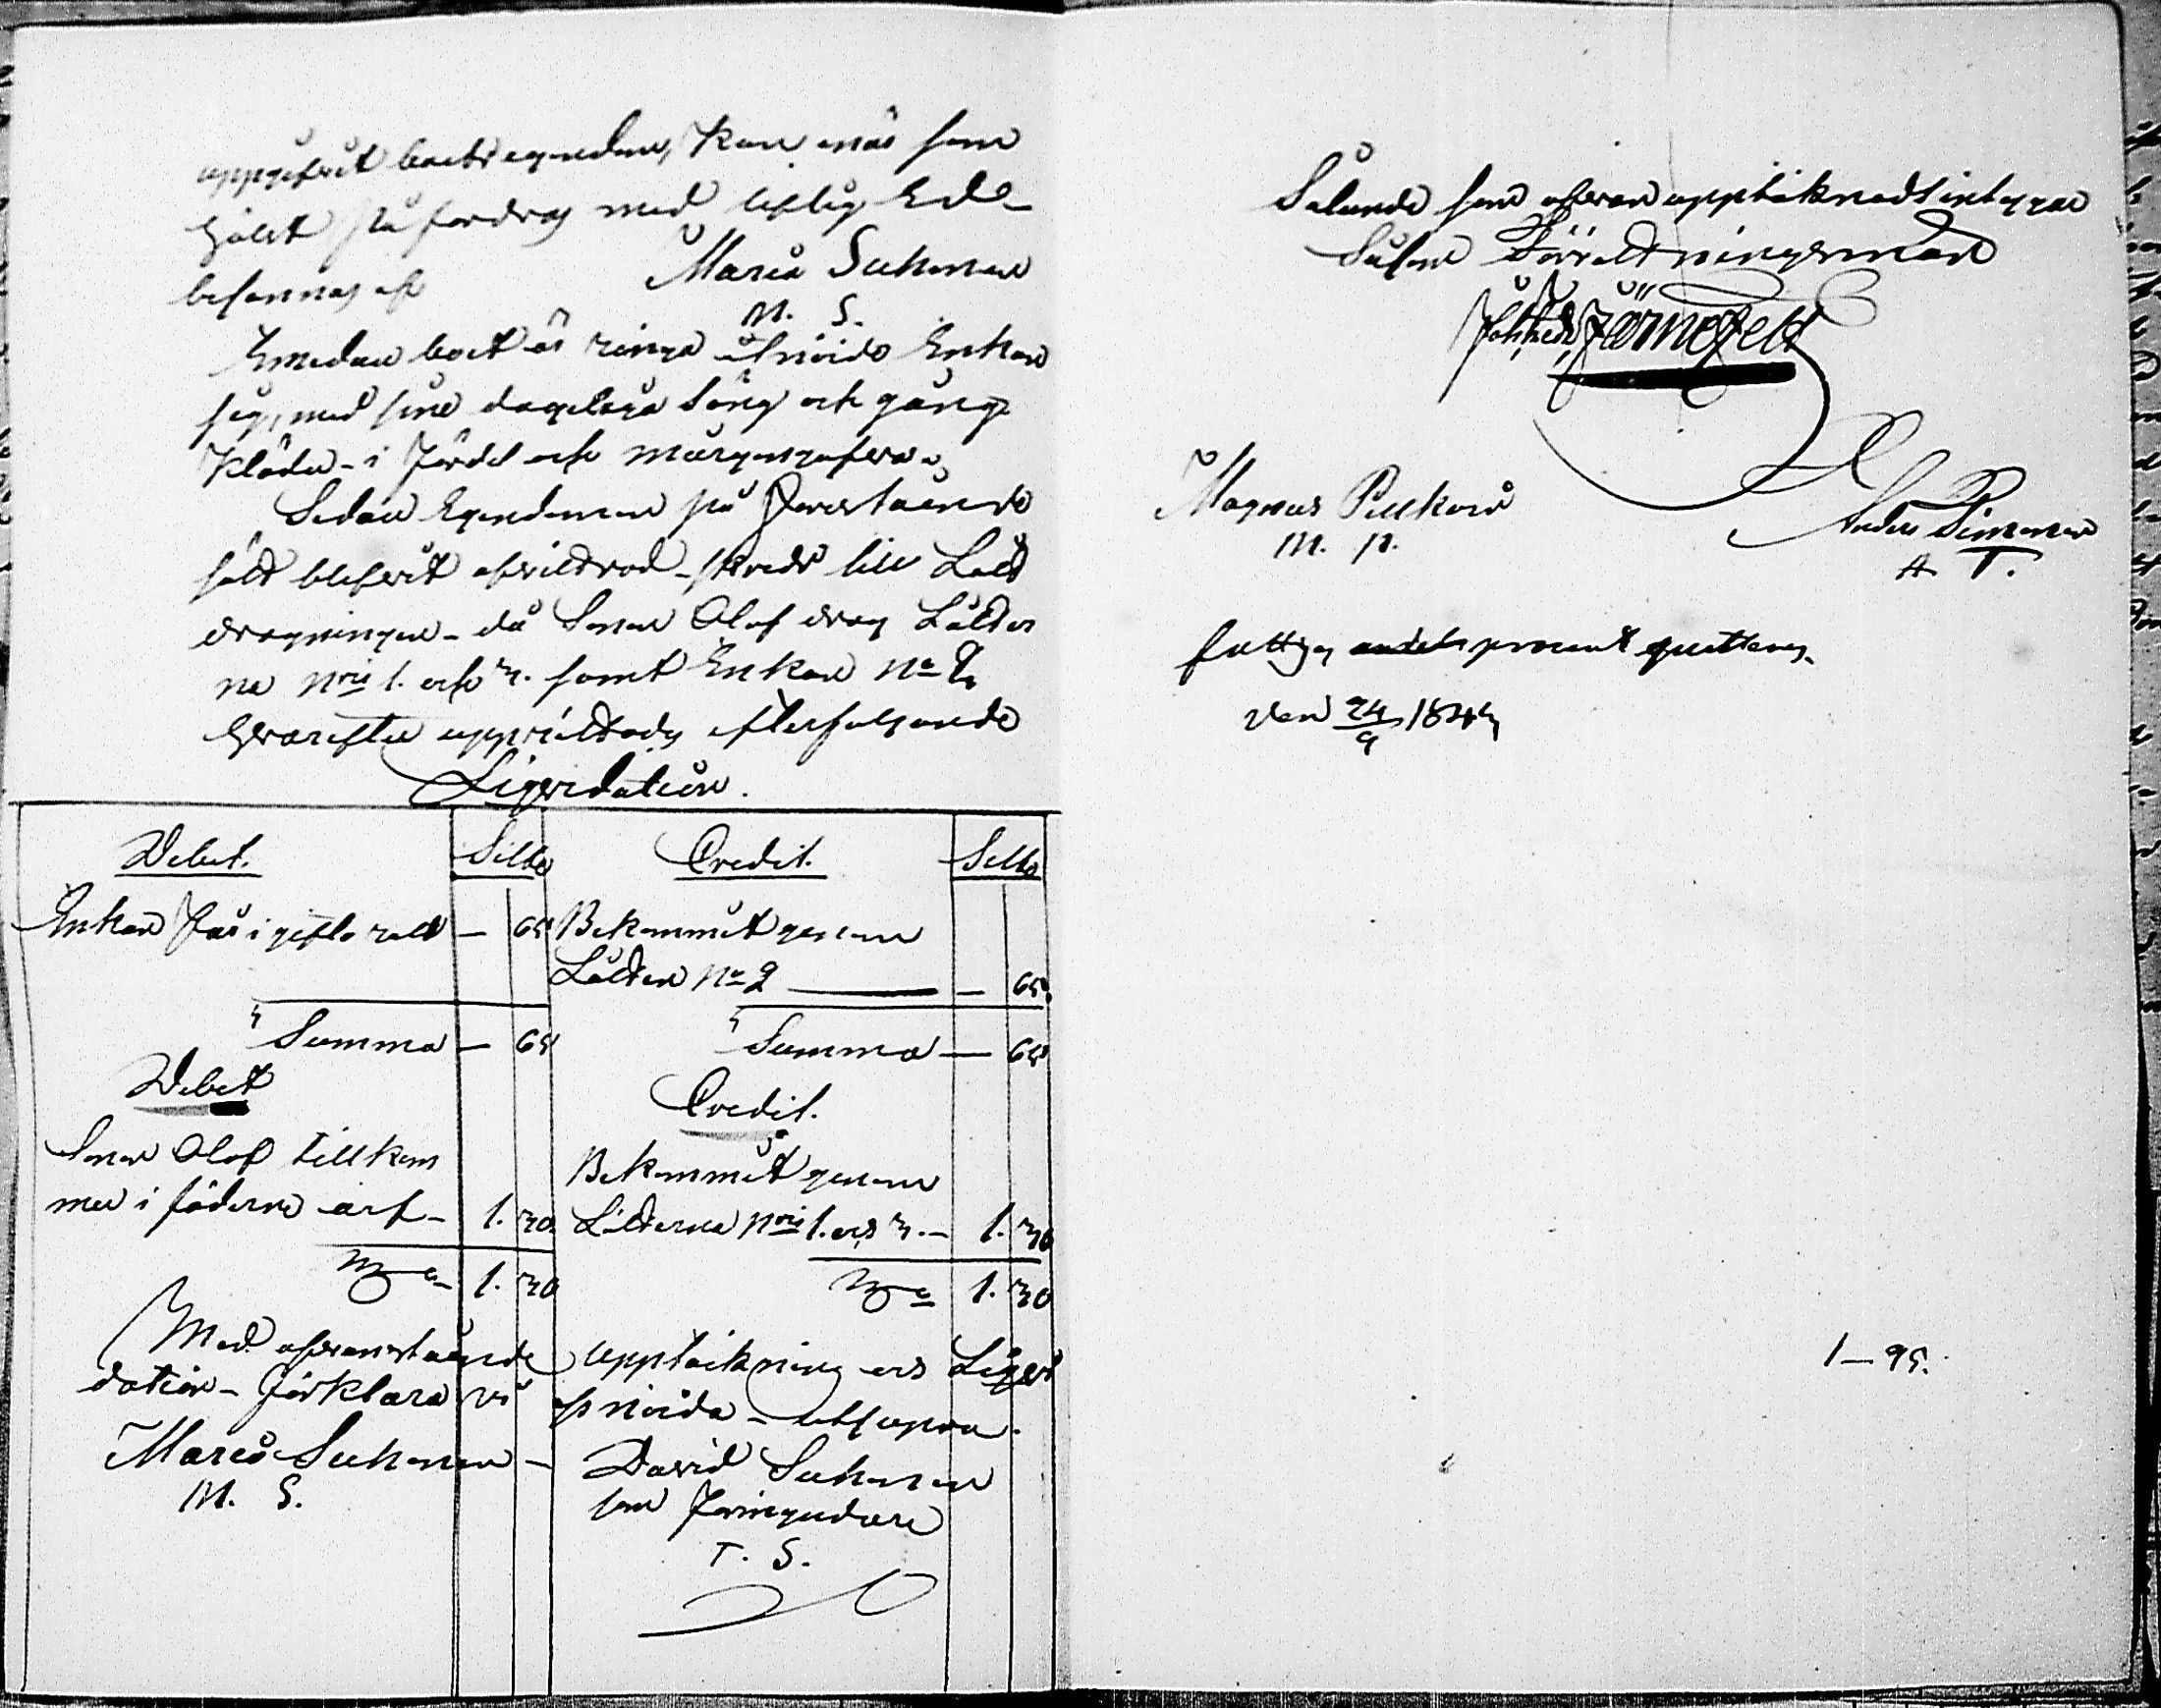 uppgifwit boets egendom, kan när som
hälst på fordras med liflig Ed
besannas af Maria Suhonen
M. S.
Emedan boet är ringa åtnöide Enkan
sig, med sine dageliga Säng och gång
kläder i fördel och morgongåfwa.
Sedan Egendomen på förestående
sätt blifwit afwittrad, skreds till Lått
dragningen då Sonen Olof drog Låtter
na Nris 1. och 3. samt Enkan No 2
hwarefter upprättades efterfolgande
Liqvidation.
Debet. Silfver Credit. Silfver
Enkan får i gifto rätt — 65 Bekommit genom
Låtten No 2 — 65.
Summa — 65 Summa — 65
Debet Credit.
Sonen Olof tillkom
mer i fäderne arf 1. 30. Bekommit genom
Låtterna Nris 1. och 3. 1. 30
1. 30 1. 30
Med ofvanstående upptäckning och Liqvi
dation förklara vi oss nöida utsupra.
Maria Suhonen David Suhonen
M. S. som förmyndare
T. S.
Sålunda som ofwan upptäknadt intygar
Såsom Förrättningsman
Johan Järnefelt
Magnus Pulkoin
M. P.
Anders Timonen
A. T.
fattig procent quitteras
den 24/9 1844
1 — 95.